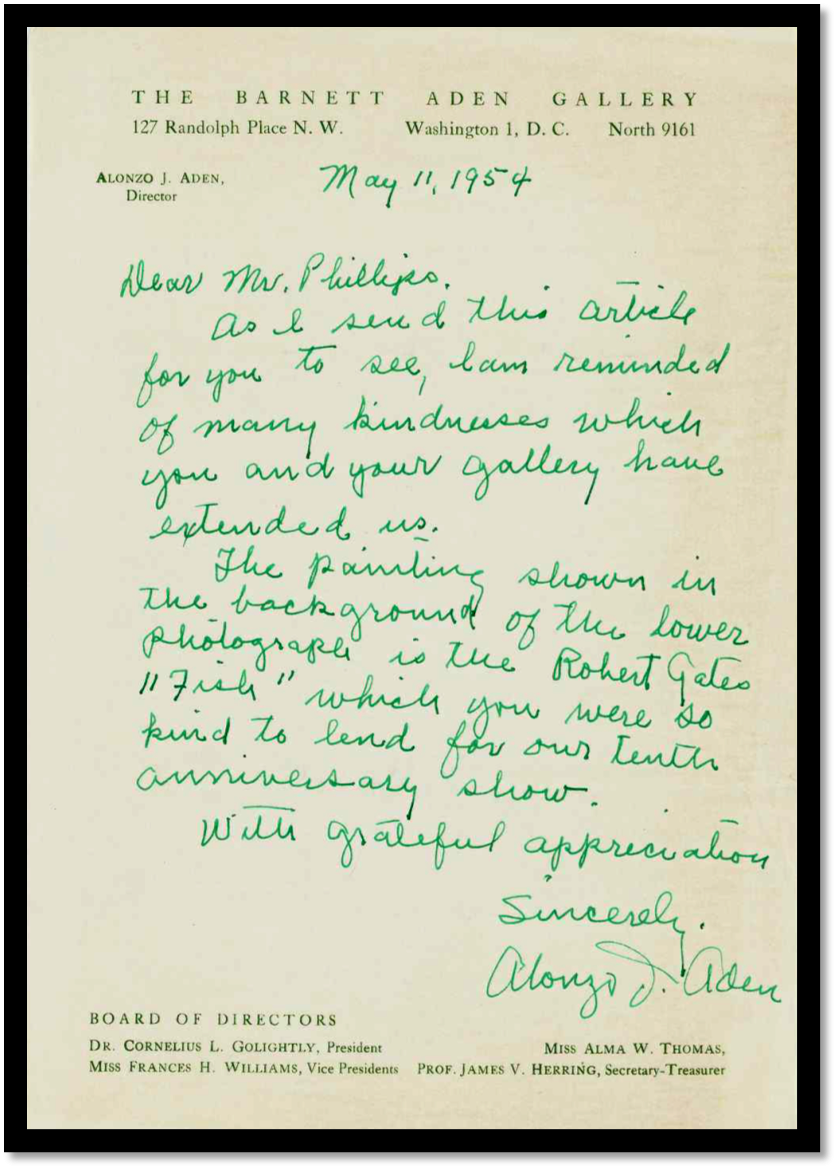 THE BARNETT ADEN GALLERY
127 Randolph Place N. W. Washington 1, D. C. North 9161
ALONZO J. ADEN,
Director
May 11, 1954
Dear Mr. Phillips.
As I send this article
for you to see, I am reminded
of many kindnesses which
you and your gallery have
extended us.
The painting shown in
the background of the lower
photograph is the Robert Gates
"Fish" which you were so
kind to lend for our tenth
anniversary show.
With grateful appreciation
Sincerely,
Alonzo J. Aden
BOARD OF DIRECTORS
DR. CORNELIUS L. GOLIGHTLY, President MISS ALMA W. THOMAS,
MISS FRANCES H. WILLIAMS, Vice Presidents PROF. JAMES V. HERRING, Secretary-Treasurer